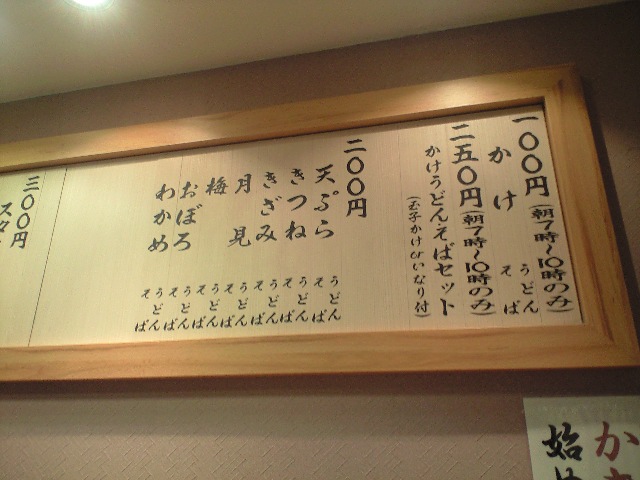 一〇〇円(朝7時～10時のみ)
かけ うどん そば
二五〇円(朝7時～10時のみ)
かけうどんそばセット
(玉子かけorいなり付)
二〇〇円
天ぷら うどん そば
きつね うどん そば
きざみ うどん そば
月見 うどん そば
梅 うどん そば
おぼろ うどん そば
わかめ うどん そば
三〇〇円
スタ
か
始